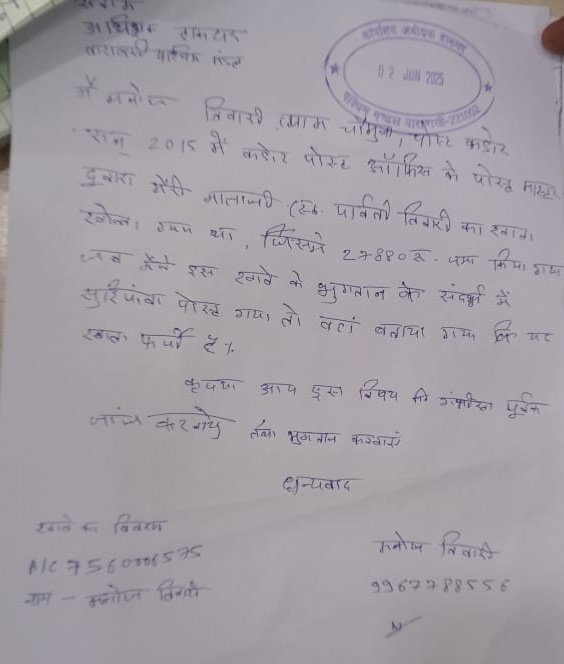 अधीक्षक डाकघर
वाराणसी पश्चिम मंडल
कार्यालय अधीक्षक डाकघर
02 JUN 2025
पश्चिम मण्डल वाराणसी-221002
मैं मनोज तिवारी ग्राम चौमुखा, पोस्ट कठोर
सन् 2015 में कठोर पोस्ट ऑफिस के पोस्ट मास्टर
द्वारा मेरी माताजी पार्वती तिवारी का खाता
खोला गया था, जिसमे 27880 रु. जमा किया गया
जब मैंने इस खाते के भुगतान के संदर्भ में
पोस्ट गया तो वहां बताया गया कि यह
खाता फर्जी है।
कृपया आप इस विषय की गंभीरता पूर्वक
जांच करवाये तथा भुगतान करवाएं
धन्यवाद
खाते का विवरण
A/C 7560006575
नाम - मनोज तिवारी
मनोज तिवारी
9967788556